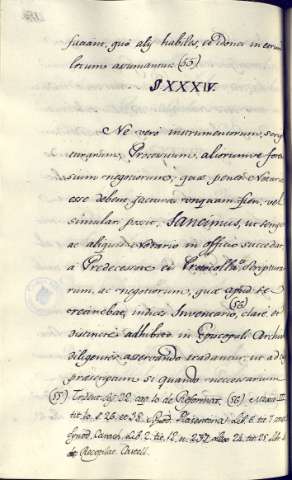 faciant, quò alij habiles, et Idonei in eorum
locum assumantur (55)
§XXXIV.
Ne verò instrumentorum, scrip-
turarum, Processuum, aliorumve foren-
sium negotiorum, quæ penes Notarios
esse debent, jactura unquam fieri, vel
simulari possit, Sancimus, ut semper
ac aliquis Notarius in officio succedat,
a Predecessore ei Protocolla, Scriptu-
rarum, ac negotiorum, quæ apud se
retinebat, indices Inventario, clarè, et
distinctè adhibito in Episcopali Archivo
diligenter asservando tradantur, ut ad
præscriptum si quando necessarium
(55) Trident. 22. cap. 10. de Reformat. (56) Mexic. III
tit. 10. § 26. et 38. Synod. Plasentina Lib. 6. tit. 7.
Synod. Canar. Lib. 2. tit. 12. n. 237. 24. tit. 25. Lib. 4.
de Recopilac. Castell.